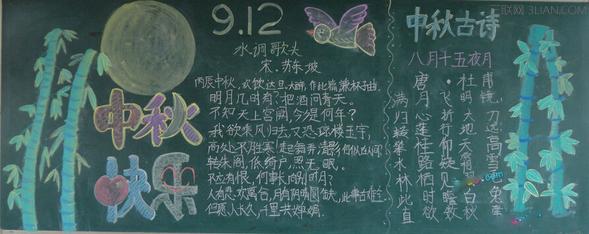 中秋
快乐
9.12
水调歌头
宋.苏东坡
丙辰中秋,欢饮达旦,大醉,作此篇,兼怀子由。
明月几时有?把酒问青天。
不知天上宫阙,今夕是何年?
我欲乘风归去,又恐琼楼玉宇,
高处不胜寒。起舞弄清影,何似在人间
转朱阁,低绮户,照无眠。
不应有恨,何事长向别时圆?
人有悲欢离合,月有阴晴圆缺,此事古难全
但愿人长久,千里共婵娟.
中秋古诗
八月十五夜月
唐·杜甫
满月飞明镜
归心折大刀
转蓬行地远
攀桂仰天高
水路疑霜雪
林栖见羽毛
此时瞻白兔
直欲数秋毫
联网 3LIAN.COM